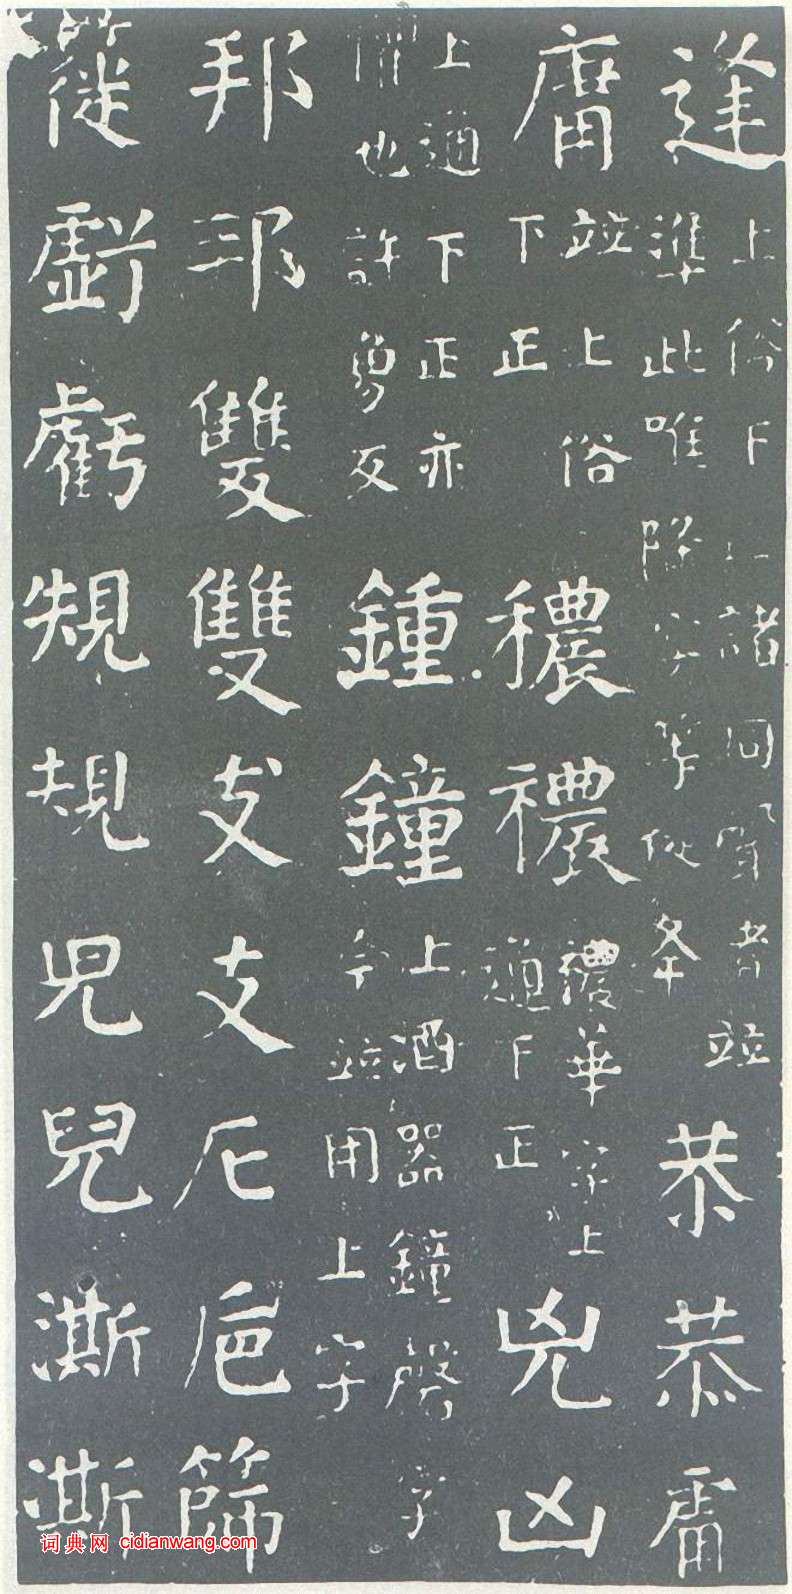 逢上俗下正諸同聲者並
準此唯降字等從夅恭恭𤲞
庸並上俗
下正穠襛襛華字上
通下正兇凶
上通下正亦
懼也許勇反鍾鐘上酒器鐘磬字
今並用上字
邦邦雙雙支支卮巵篩
簁虧虧䂓規児兒澌澌
词典网 cidianwang.com